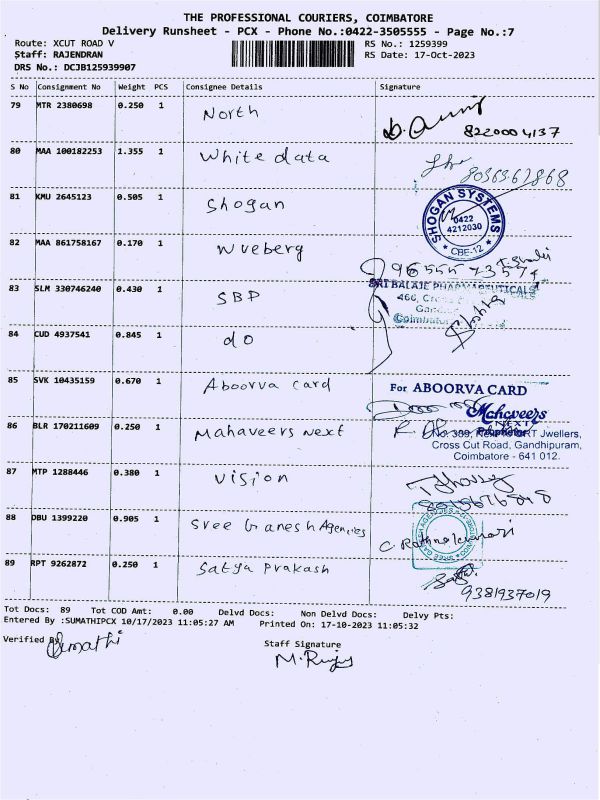 THE PROFESSIONAL COURIERS, COIMBATORE
Delivery Runsheet - PCX - Phone No.:0422-3505555 - Page No.:7
Route: XCUT ROAD V RS No.: 1259399
Staff: RAJENDRAN RS Date: 17-Oct-2023
DRS No.: DCJB125939907
S No Consignment No Weight PCS Consignee Details Signature
79 MTR 2380698 0.250 1 North
8220004137
80 MAA 100182253 1.355 1 White data
81 KMU 2645123 0.505 1 Shogan
SHOGAN SYSTEMS
0422
4212030
CBE-12
82 MAA 861758167 0.170 1 Wueberg
83 SLM 330746240 0.430 1 SBP
SRI BALAJE PHARMACEUTICALS
466, Cross
Coimbatore
84 CUD 4937541 0.845 1 do
85 SVK 10435159 0.670 1 Aboorva Card
For ABOORVA CARD
86 BLR 170211609 0.250 1 Mahaveers Next
Mahaveers
NEXT
Jwellers,
Cross Cut Road, Gandhipuram,
Coimbatore - 641 012.
87 MTP 1288446 0.380 1 Vision
88 DBU 1399220 0.905 1 Sree Ganesh Agencies
89 RPT 9262872 0.250 1 Satya Prakash
9381937019
Tot Docs: 89 Tot COD Amt: 0.00 Delvd Docs: Non Delvd Docs: Delvy Pts:
Entered By :SUMATHIPCX 10/17/2023 11:05:27 AM Printed On: 17-10-2023 11:05:32
Verified By Sumathi
Staff Signature